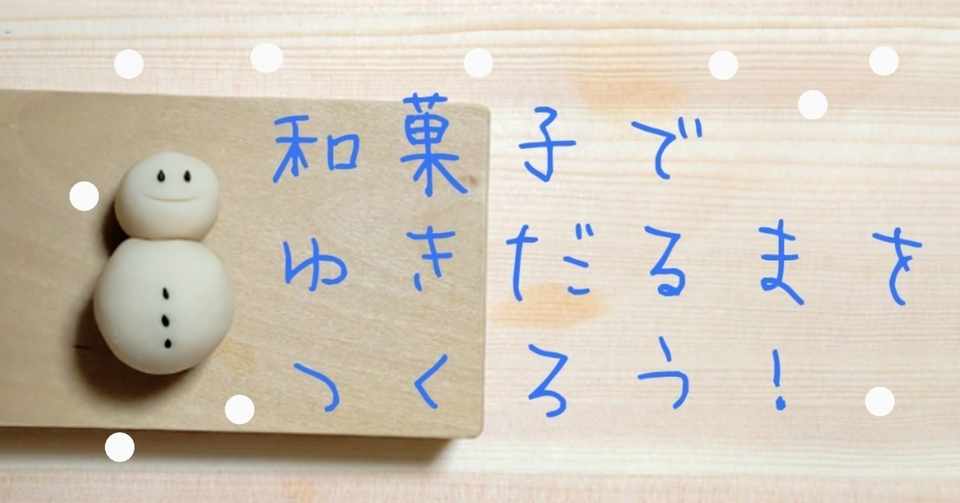 和菓子で
ゆきだるまを
つくろう!